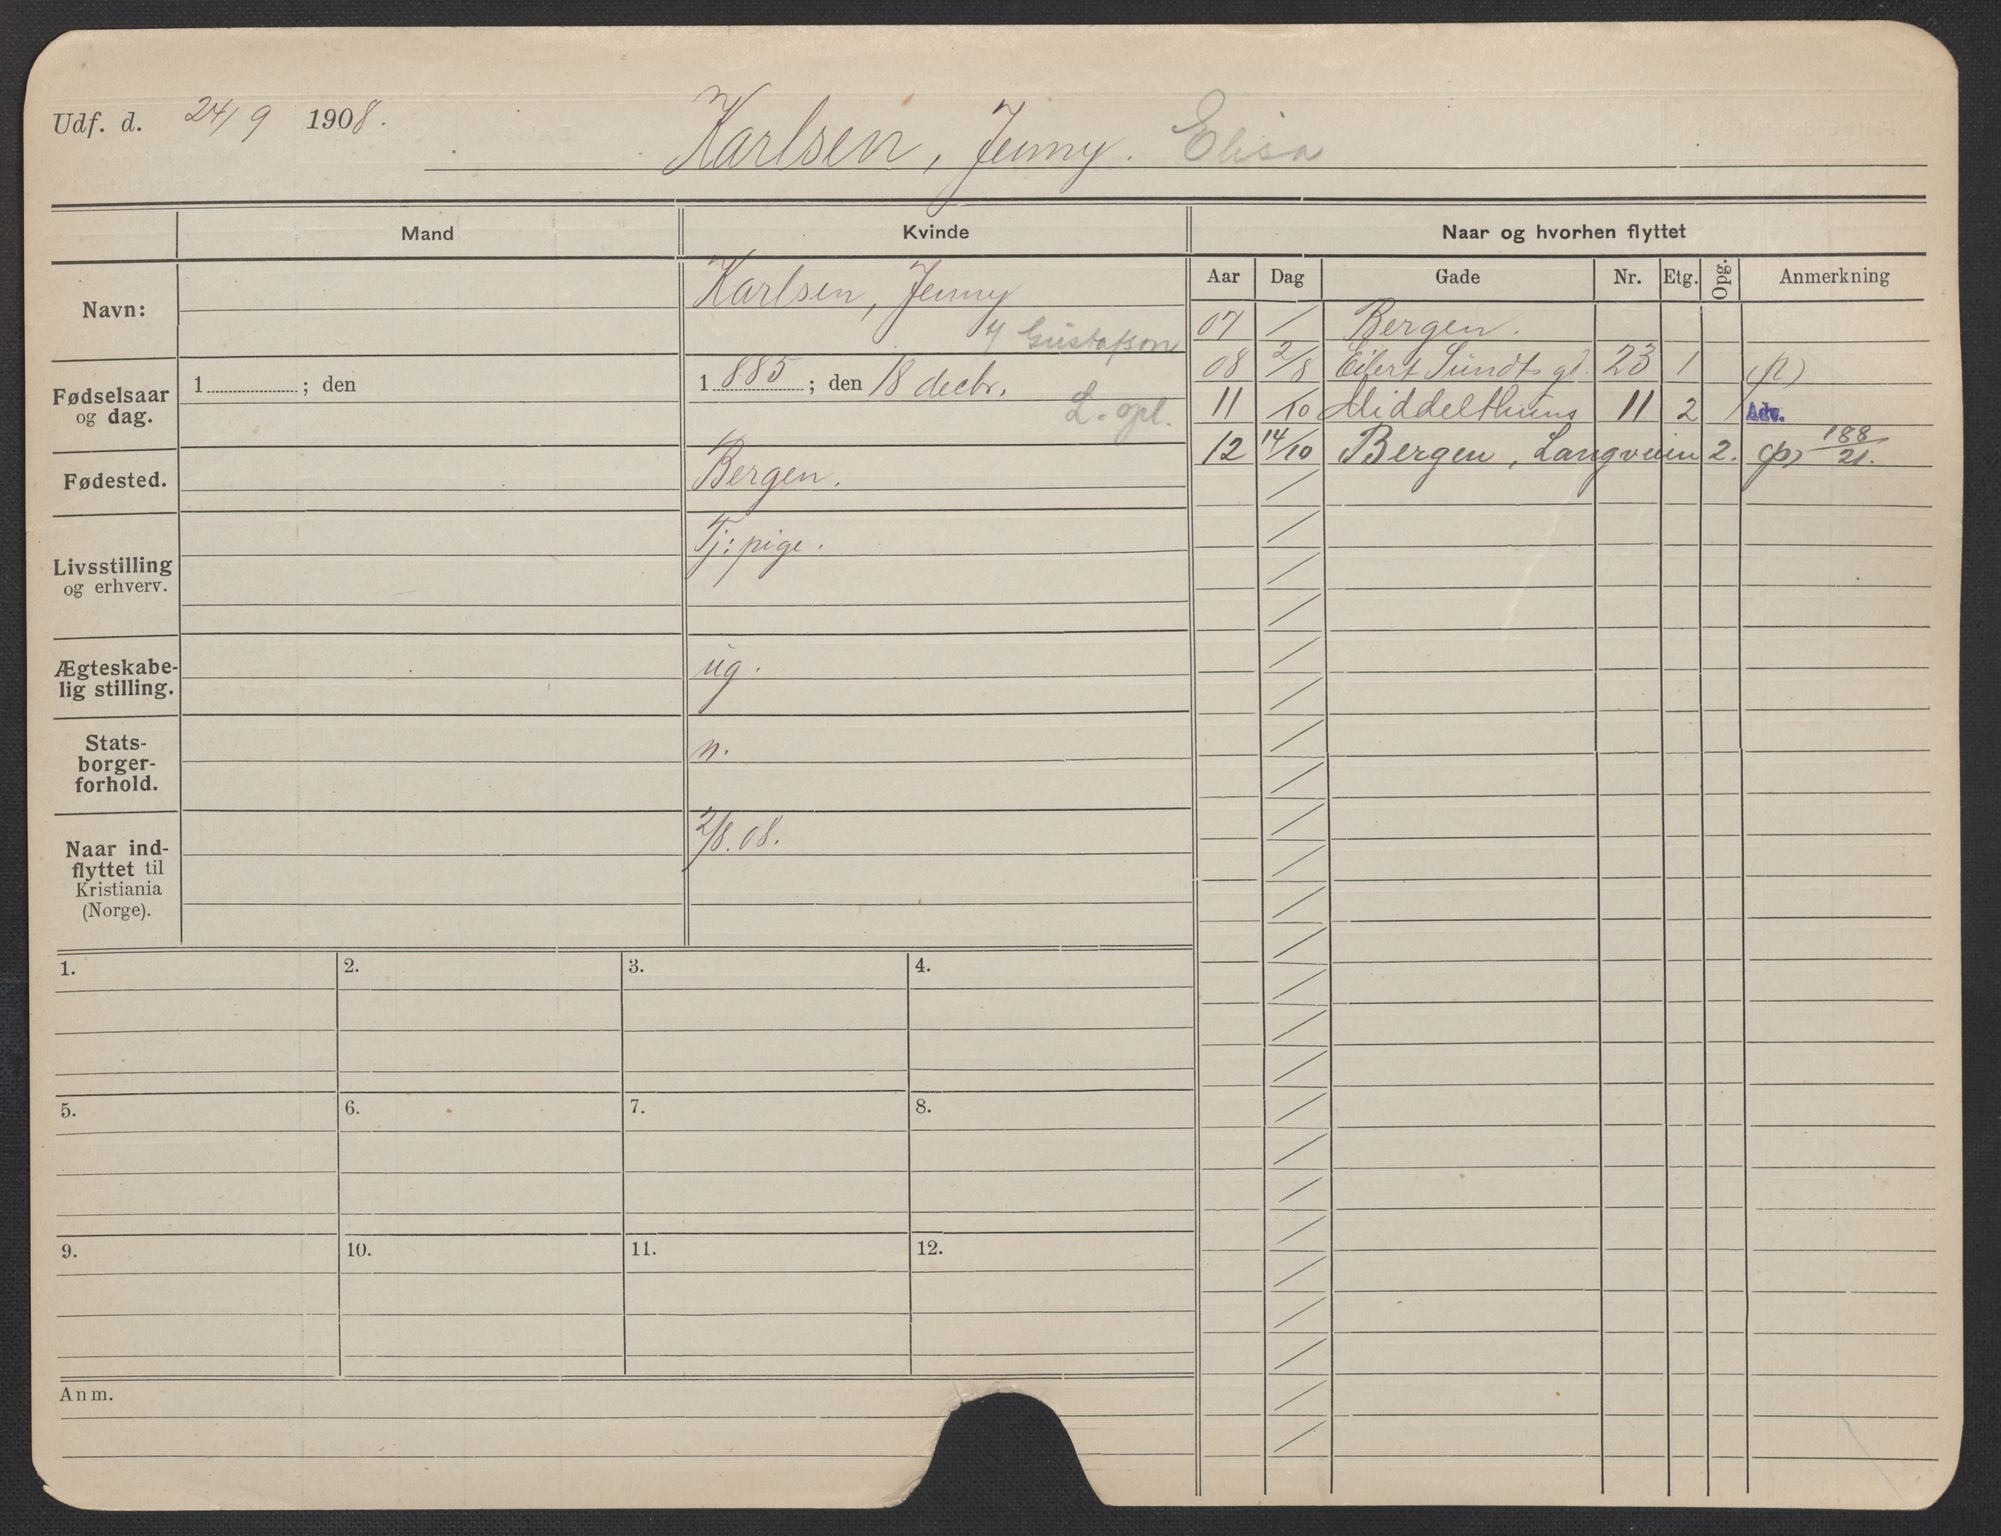 Udf. d. 24/9 1908.
Karlsen, Jenny. Elisa
Mand
Kvinde
Naar og hvorhen flyttet
Aar Dag Gade Nr. Etg. Opg. Anmerkning
Navn:
Karlsen, Jenny
Gustafson
Fødselsaar
og dag.
1 ; den
1 885 ; den 18 decbr.
L. opl.
Fødested.
Bergen.
Livsstilling
og erhverv.
Tj: pige.
Ægteskabe-
lig stilling.
ug.
Stats-
borger-
forhold.
n.
Naar ind-
flyttet til
Kristiania
(Norge).
2/8. 08.
07 / Bergen.
08 2/8 Eilert Sundts gd. 23 1 (n)
11 /10 Middelthuns 11 2 / Adv.
12 14/10 Bergen, Langveien 2. (p) 188/21.
1. 2. 3. 4.
5. 6. 7. 8.
9. 10. 11. 12.
Anm.